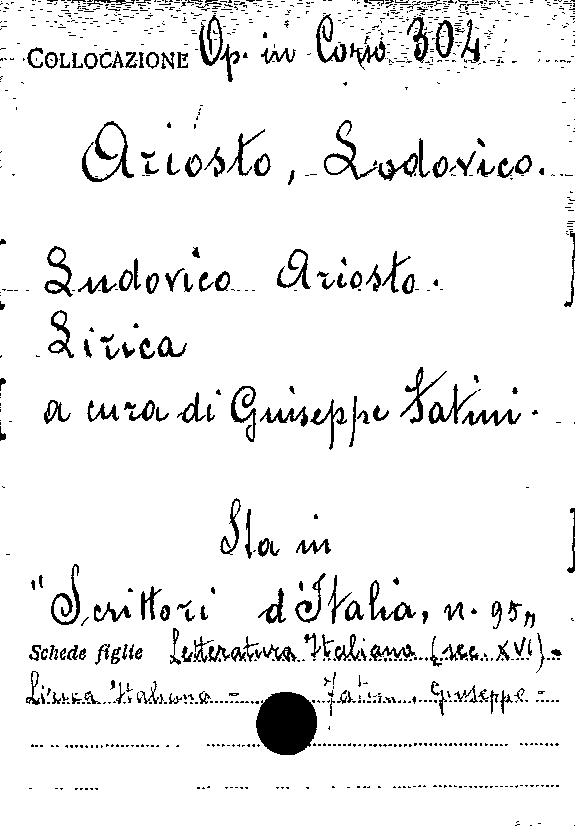 COLLOCAZIONE Op. in Corso 304
Ariosto, Lodovico.
Ludovico Ariosto.
Lirica
a cura di Guiseppe Fatini.
Sta in
"Scrittori d'Italia, n. 95"
Schede figlie Letteratura Italiana (sec. XVI) -
Lirica Italiana - Fatini, Giuseppe -